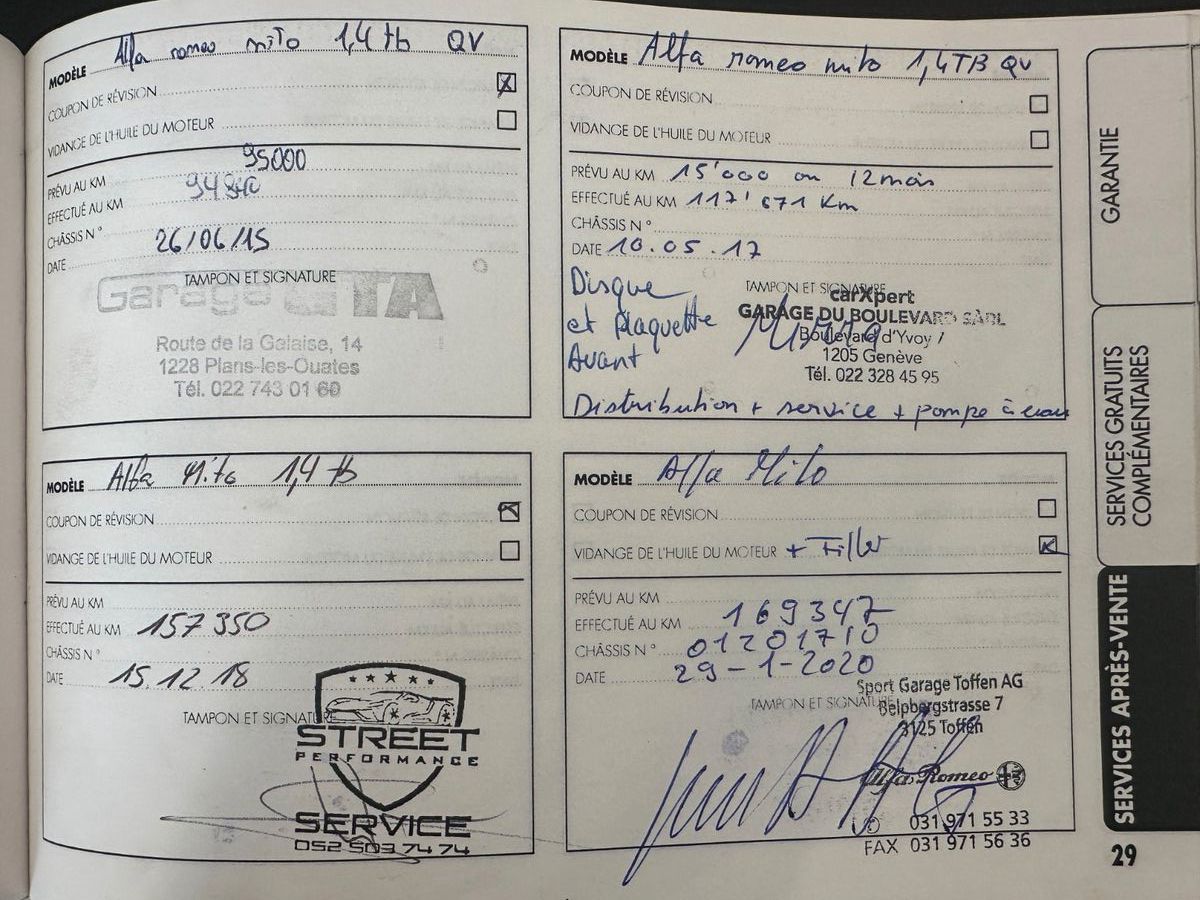 MODÈLE Alfa romeo mito 1,4 tb QV
COUPON DE RÉVISION
VIDANGE DE L'HUILE DU MOTEUR
95000
PRÉVU AU KM
EFFECTUÉ AU KM
CHÂSSIS N°
26/06/15
DATE
TAMPON ET SIGNATURE
Garage GTA
Route de la Galaise, 14
1228 Plans-les-Ouates
Tél. 022 743 01 60
MODÈLE Alfa romeo mito 1,4TB QV
COUPON DE RÉVISION
VIDANGE DE L'HUILE DU MOTEUR
PRÉVU AU KM 15'000 ou 12 mois
EFFECTUÉ AU KM 117'671 Km
CHÂSSIS N°
DATE 10.05.17
Disque
et Plaquette
Avant
TAMPON ET SIGNATURE
carXpert
GARAGE DU BOULEVARD SÀRL
Boulevard d'Yvoy 7
1205 Genève
Tél. 022 328 45 95
Distribution + service + pompe à eau
MODÈLE Alfa Mito 1,4 tb
COUPON DE RÉVISION
VIDANGE DE L'HUILE DU MOTEUR
PRÉVU AU KM
EFFECTUÉ AU KM 157350
CHÂSSIS N°
DATE 15.12.18
TAMPON ET SIGNATURE
STREET
PERFORMANCE
SERVICE
052 503 74 74
MODÈLE Alfa Mito
COUPON DE RÉVISION
VIDANGE DE L'HUILE DU MOTEUR + Filter
PRÉVU AU KM
EFFECTUÉ AU KM 169347
CHÂSSIS N° 01201710
DATE 29-1-2020
TAMPON ET SIGNATURE
Sport Garage Toffen AG
Belpbergstrasse 7
3125 Toffen
Alfa Romeo
031 971 55 33
FAX 031 971 56 36
GARANTIE
SERVICES GRATUITS
COMPLÉMENTAIRES
SERVICES APRÈS-VENTE
29